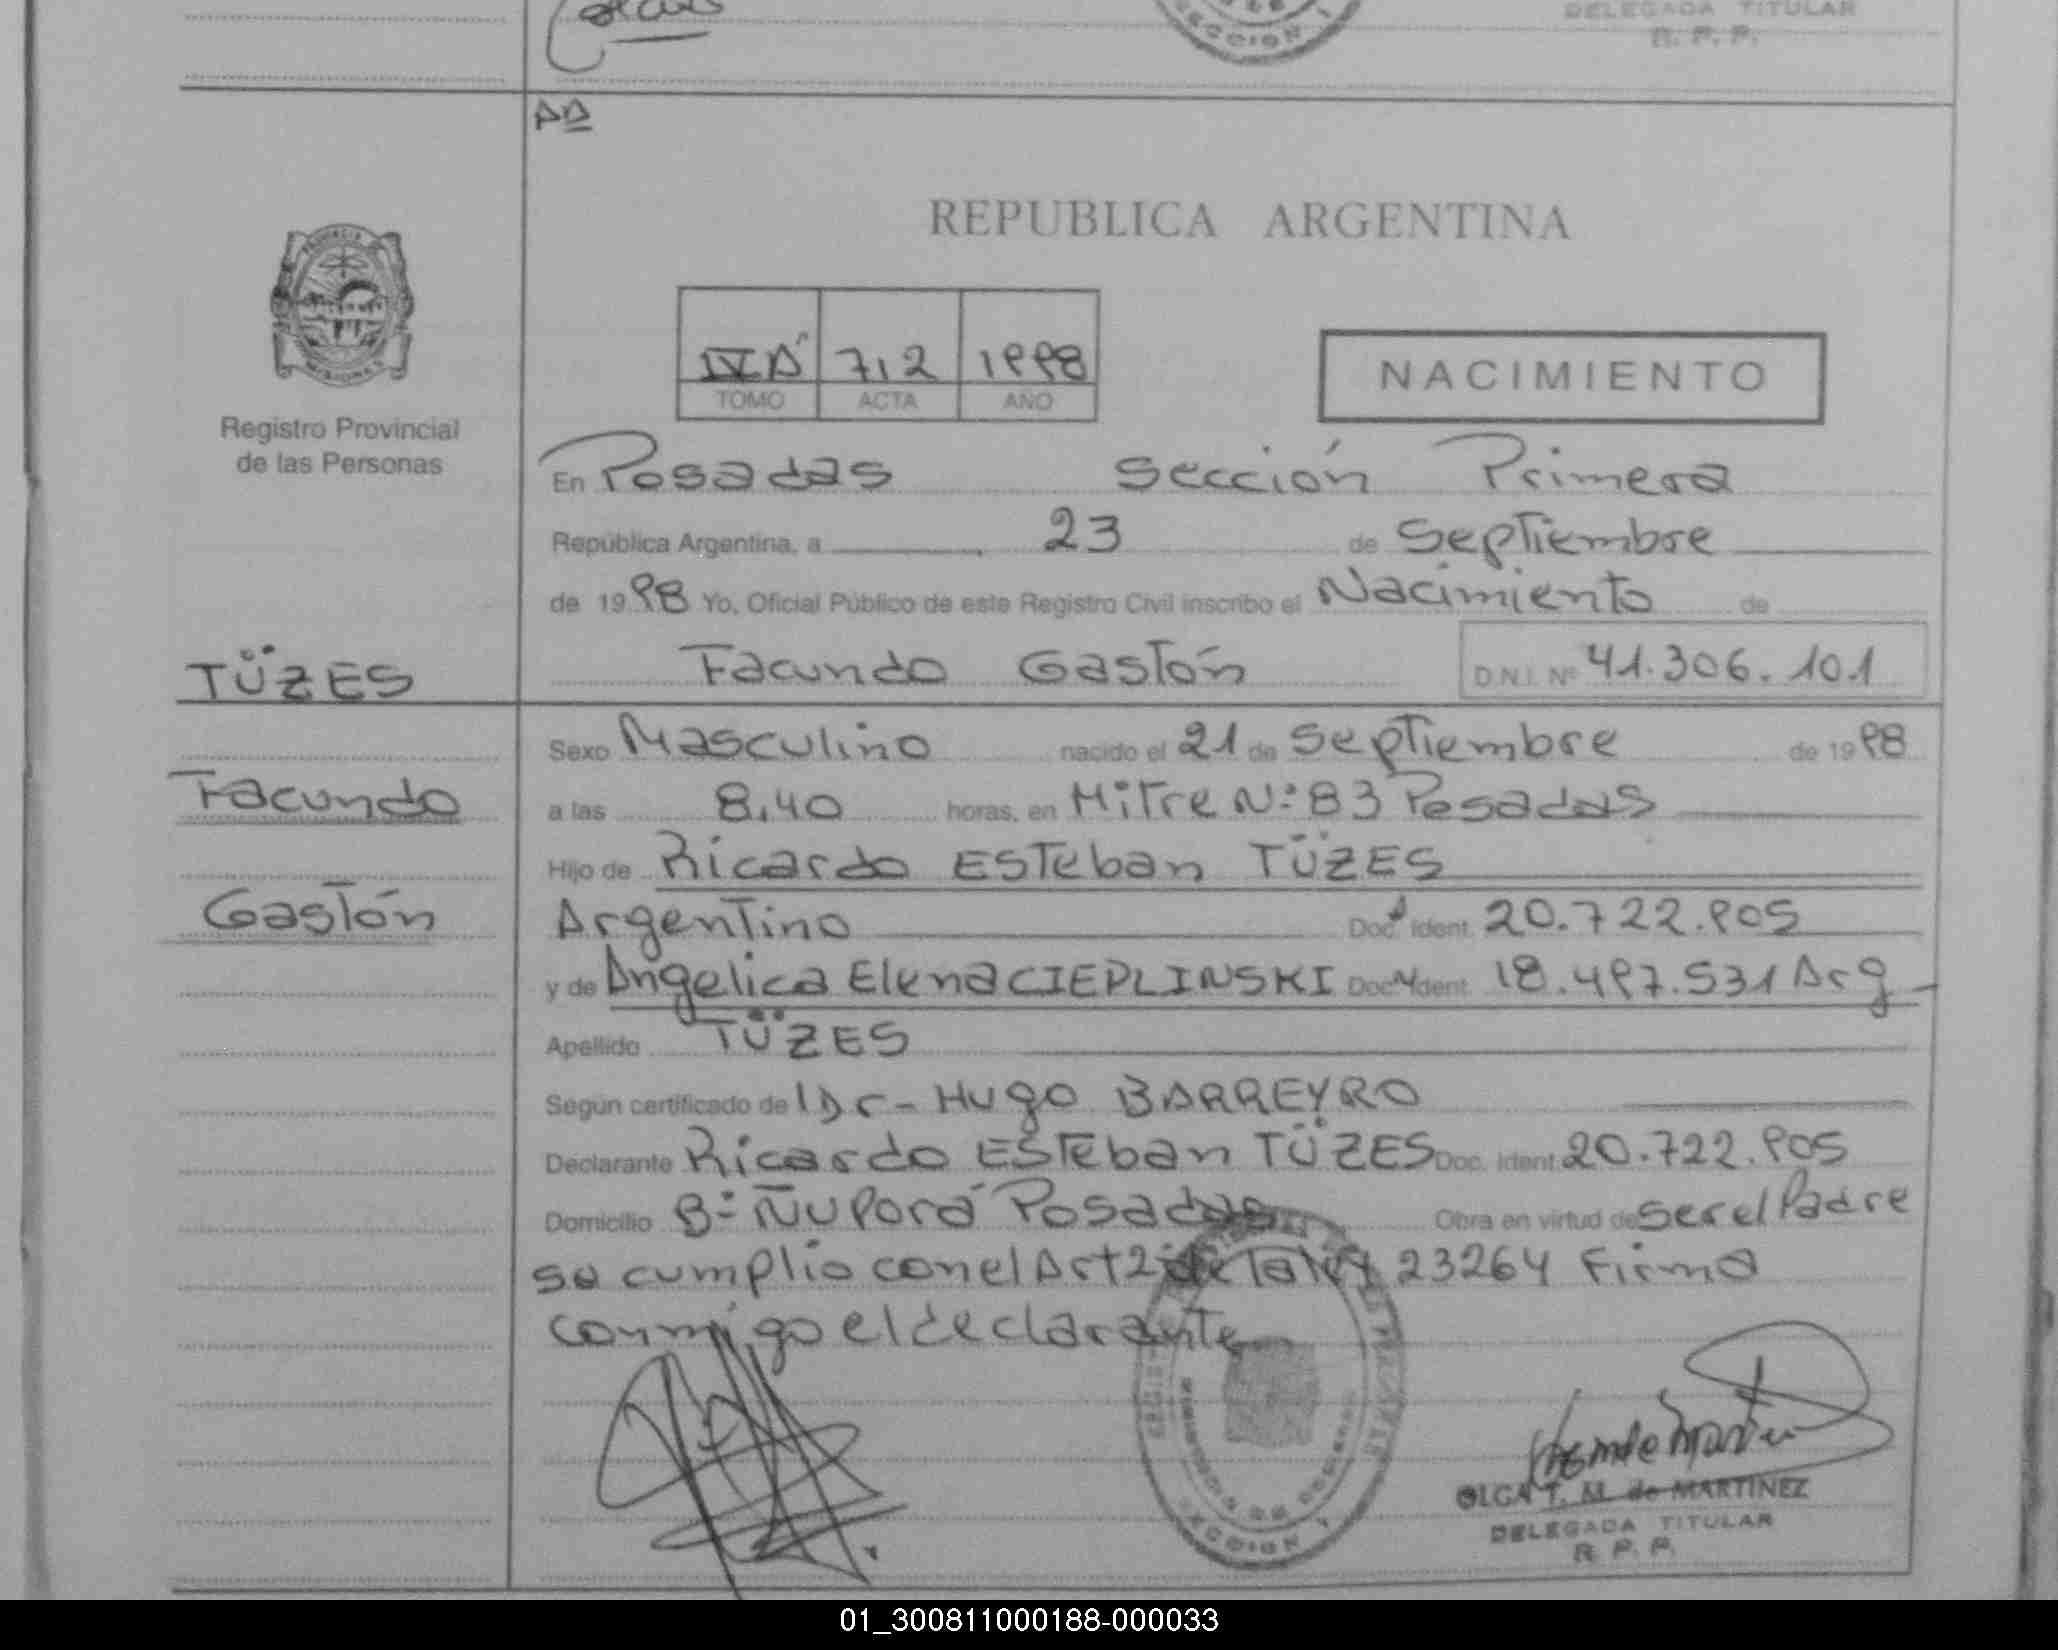 DELEGADA TITULAR
R. P. P.
SECCION 1
AD
REPUBLICA ARGENTINA
PROVINCIA
MISIONES
IV A 712 1998
TOMO ACTA AÑO
NACIMIENTO
Registro Provincial
de las Personas
En Posadas Sección Primera
República Argentina, a 23 de Septiembre
de 1998 Yo, Oficial Público de este Registro Civil inscribo el Nacimiento de
TÜZES
Facundo Gastón D.N.I. Nº 41.306.101
Sexo Masculino nacido el 21 de Septiembre de 1998
Facundo
a las 8,40 horas, en Mitre Nº 83 Posadas
Hijo de Ricardo ESTeban TÜZES
Gastón
Argentino Doc. Ident. 20.722.905
y de Angelica Elena CIEPLINSKI Doc. Ident. 18.497.531 Arg
Apellido TÜZES
Según certificado del Dr- Hugo BARREYRO
Declarante Ricardo ESTeban TÜZES Doc. Ident. 20.722.905
Domicilio Bº Ñu Porá Posadas Obra en virtud de ser el Padre
se cumplio con el Art 2 de la ley 23264 Firma
conmigo el declarante
SECCION 1
OLGA T. M. de MARTINEZ
DELEGADA TITULAR
R. P. P.
01_300811000188-000033